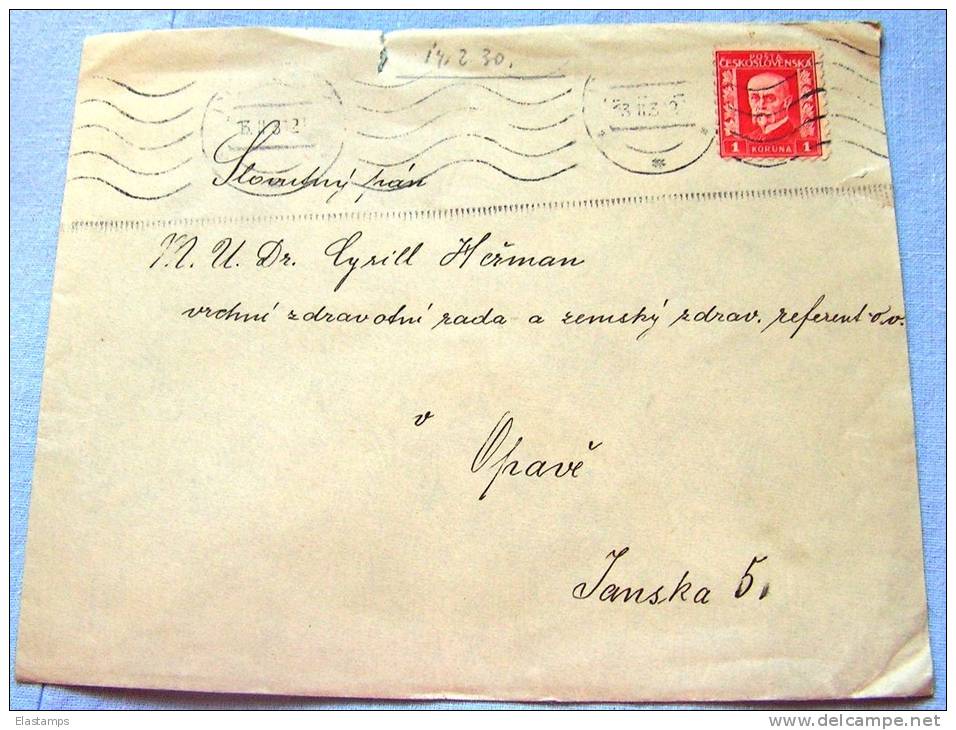 14. 2 30.
POŠTA
ČESKOSLOVENSKÁ
1 KORUNA 1
Slovutný pán
M. U. Dr. Cyrill Heřman
vrchní zdravotní rada a zemský zdrav. referent o.v.
v
Opavě
Janska 5.
Elastamps
www.delcampe.net